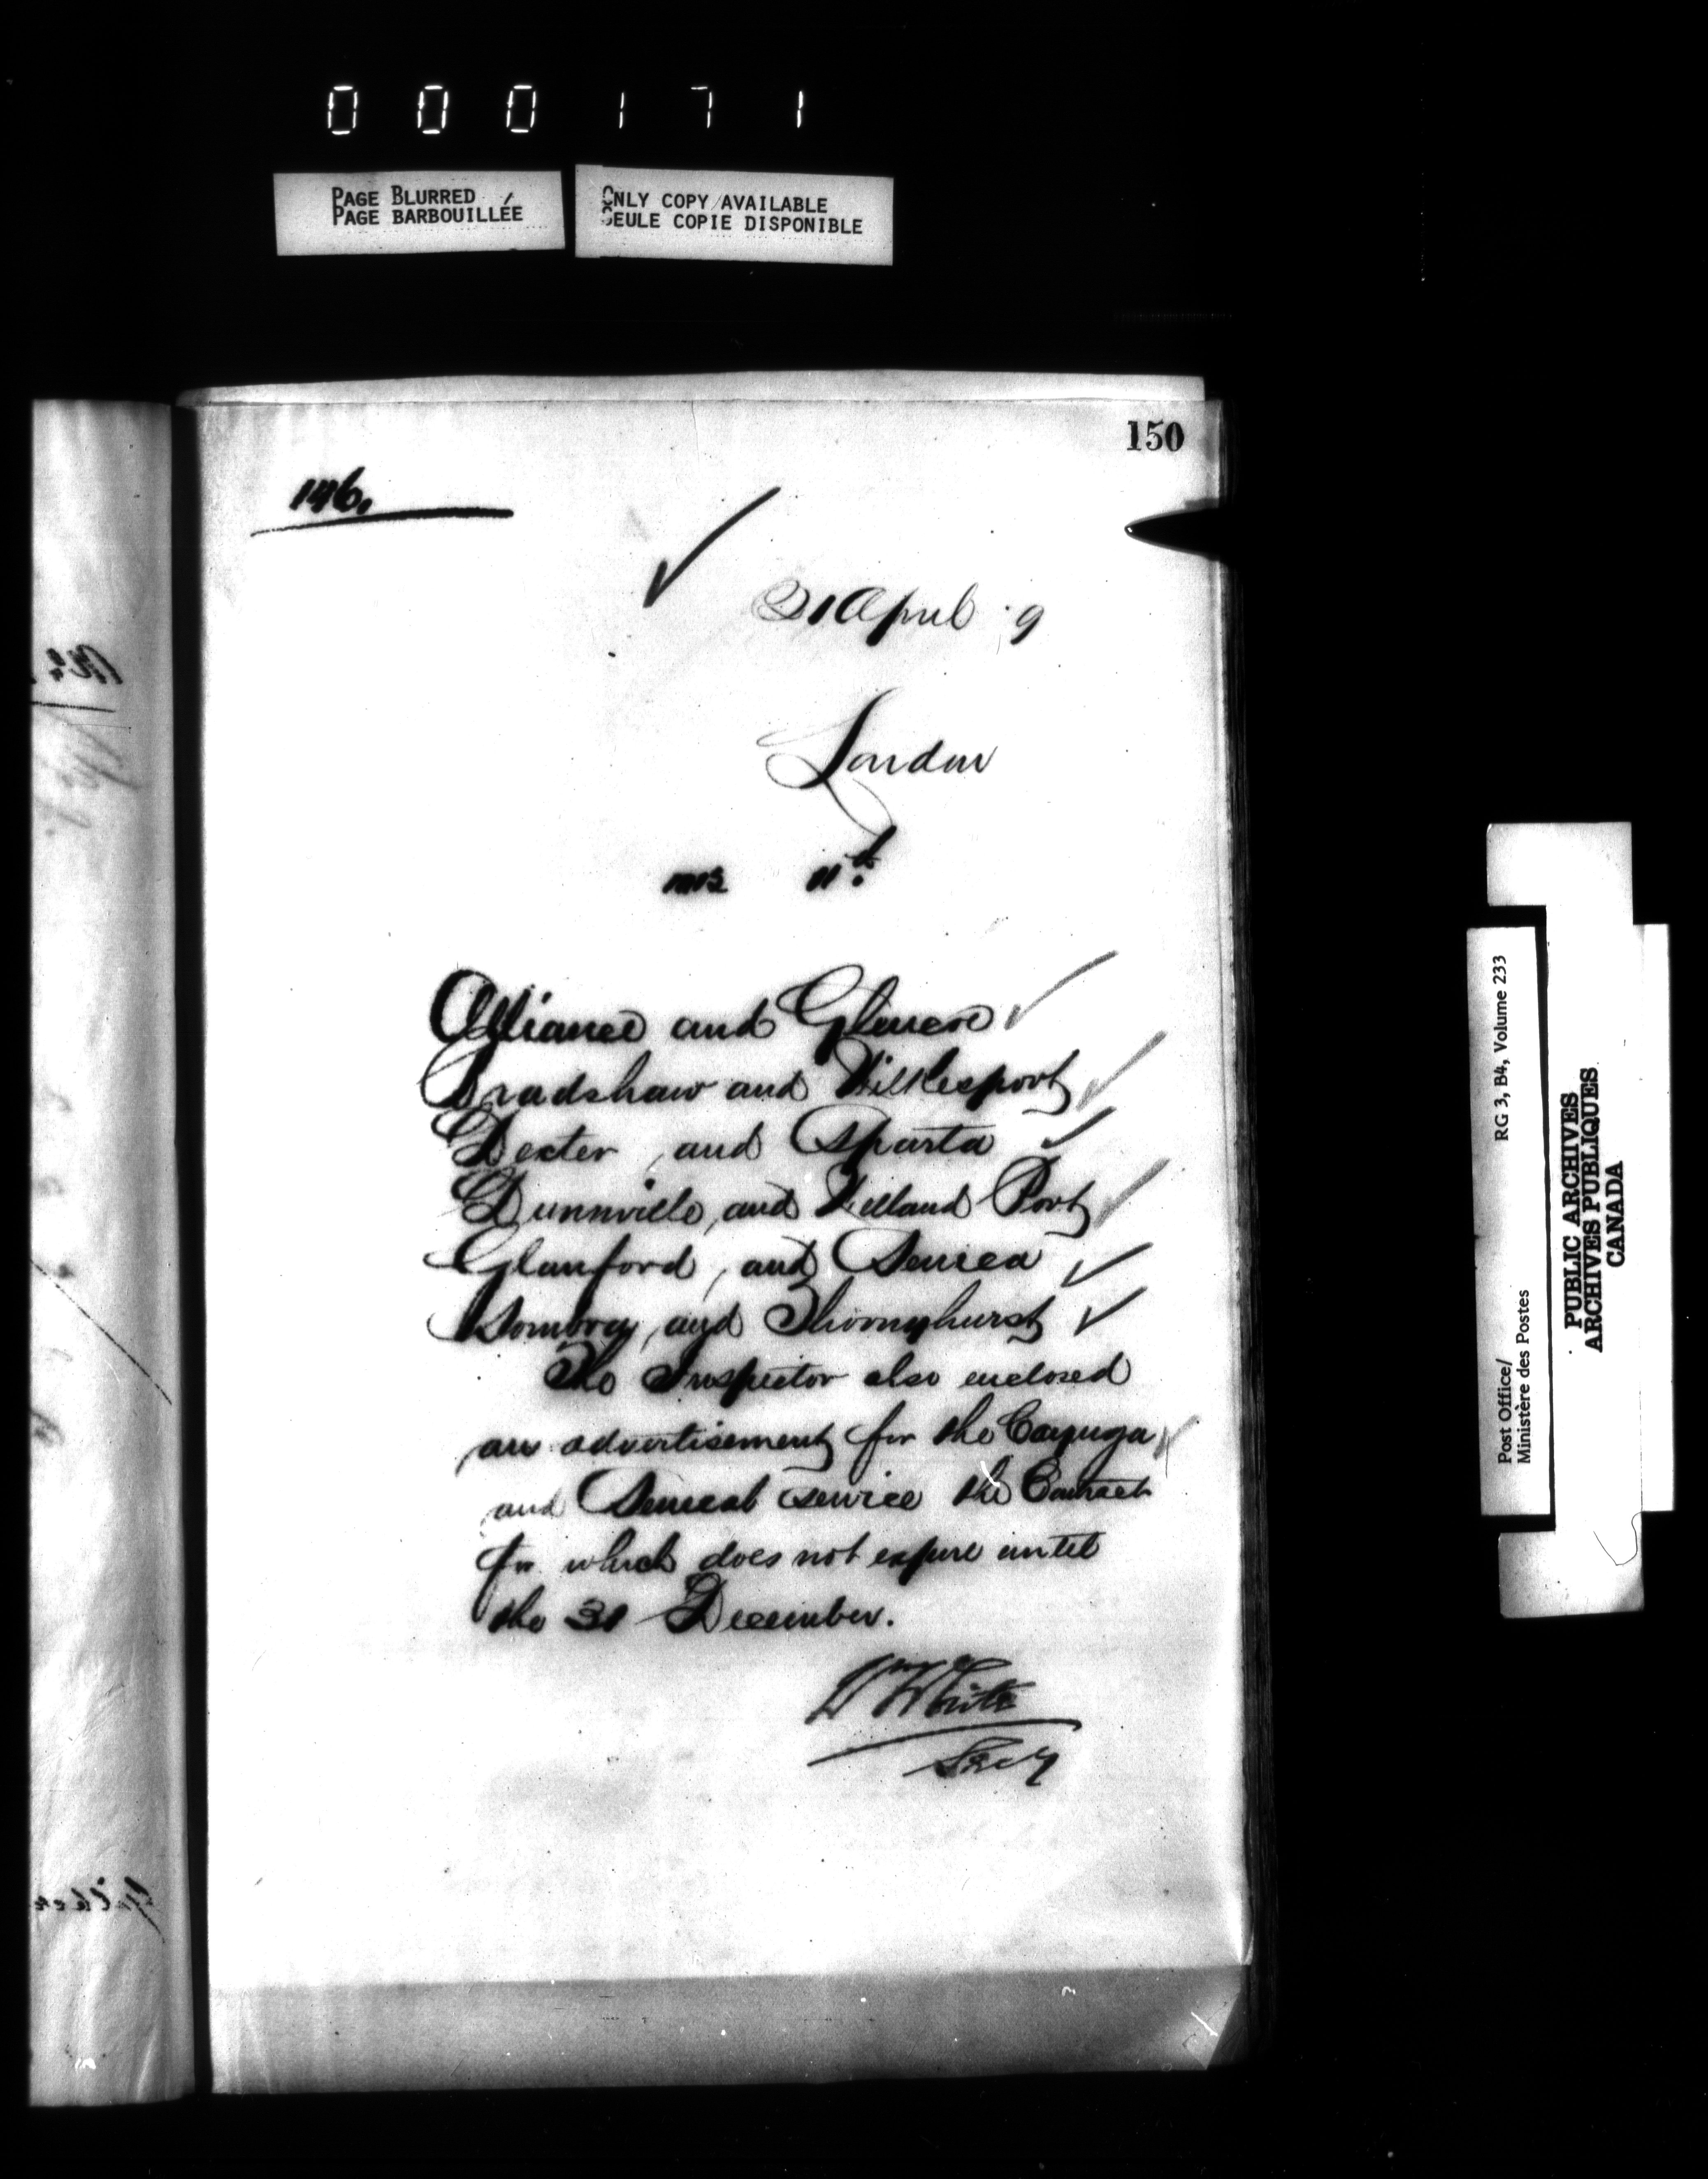 000171
PAGE BLURRED
PAGE BARBOUILLÉE
ONLY COPY AVAILABLE
SEULE COPIE DISPONIBLE
150
146.
21 April 9
London
11th
Alliance and Glencoe
Bradshaw and Wilkesport
Dexter, and Sparta
Dunnville, and Welland Port
Glanford, and Seneca
Sombra, and Thornyhurst
The Inspector also enclosed
an advertisement for the Cayuga
and Seneca service the Contract
for which does not expire until
the 31 December.
Wm White
Secy
Post Office/
Ministère des Postes
RG 3, B4, Volume 233
PUBLIC ARCHIVES
ARCHIVES PUBLIQUES
CANADA